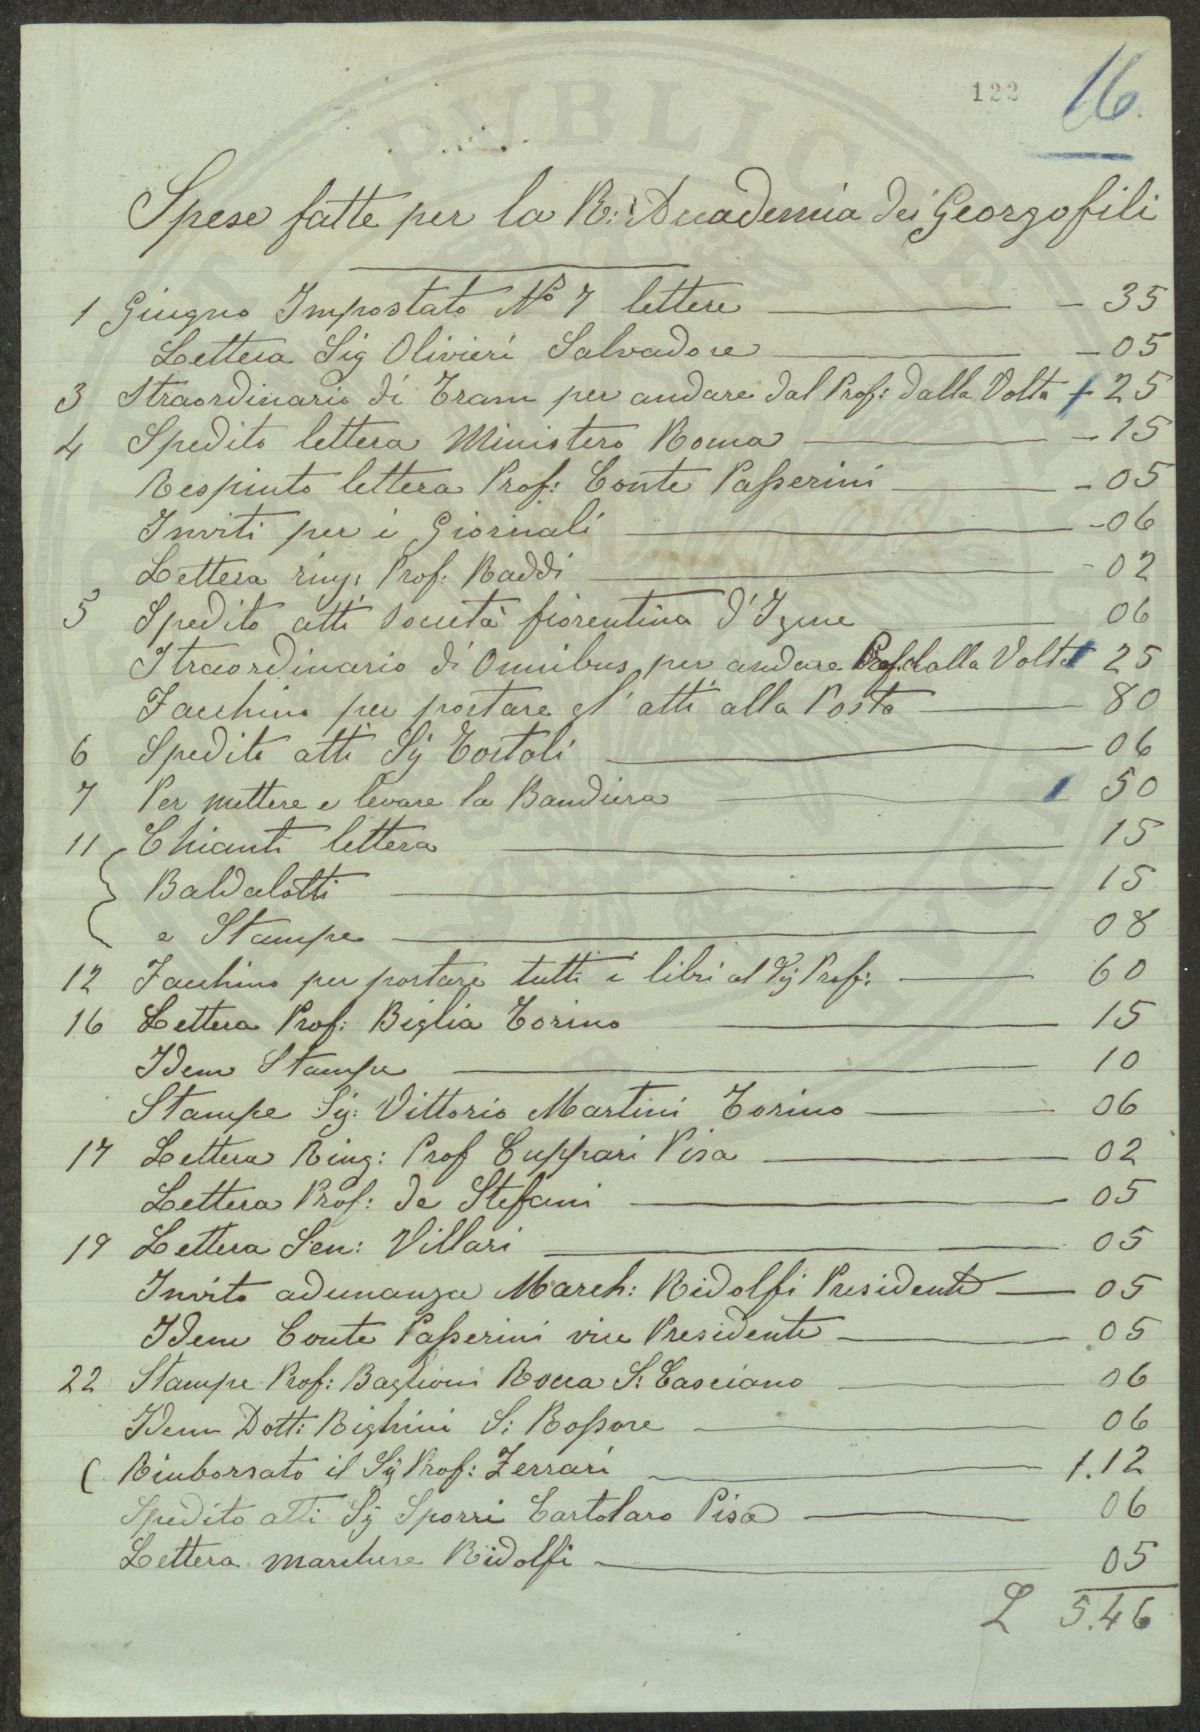 122
16
Spese fatte per la R: Accademia dei Georgofili
1 Giugno Impostato No 7 lettere — 35
Lettera Sig Olivieri Salvadore — 05
3 Straordinario di Tram per andare dal Prof: dalla Volta 25
4 Spedito lettera Ministero Roma — 15
Respinto lettera Prof: Conte Paſserini — 05
Inviti per i Giornali — 06
Lettera ring: Prof: Raddi — 02
5 Spedito atti Società fiorentina d'Igine 06
Straordinario di Omnibus per andare Prof dalla Volta 25
Facchino per portare gl'atti alla Posta — 80
6 Spedito atti Sg Tortoli — 06
7 Per mettere e levare la Bandiera — 50
11 Chianti lettera — 15
Baldalotti — 15
e Stampe — 08
12 Facchino per portare tutti i libri al Sg Prof: — 60
16 Lettera Prof: Biglia Torino — 15
Idem Stampe — 10
Stampe Sg: Vittorio Martini Torino — 06
17 Lettera Ring: Prof Cuppari Pisa — 02
Lettera Prof: de Stefani — 05
19 Lettera Sen: Villari — 05
Invito adunanza March: Ridolfi Presidente — 05
Idem Conte Paſserini vice Presidente — 05
22 Stampe Prof: Baglioni Rocca S: Casciano — 06
Idem Dott: Righini S: Roſsore — 06
( Rimborsato il Sg Prof: Ferrari — 1.12
Spedito atti Sg Sporri Cartolaro Pisa — 06
Lettera marchese Ridolfi — 05
L 5.46
PUBLIC